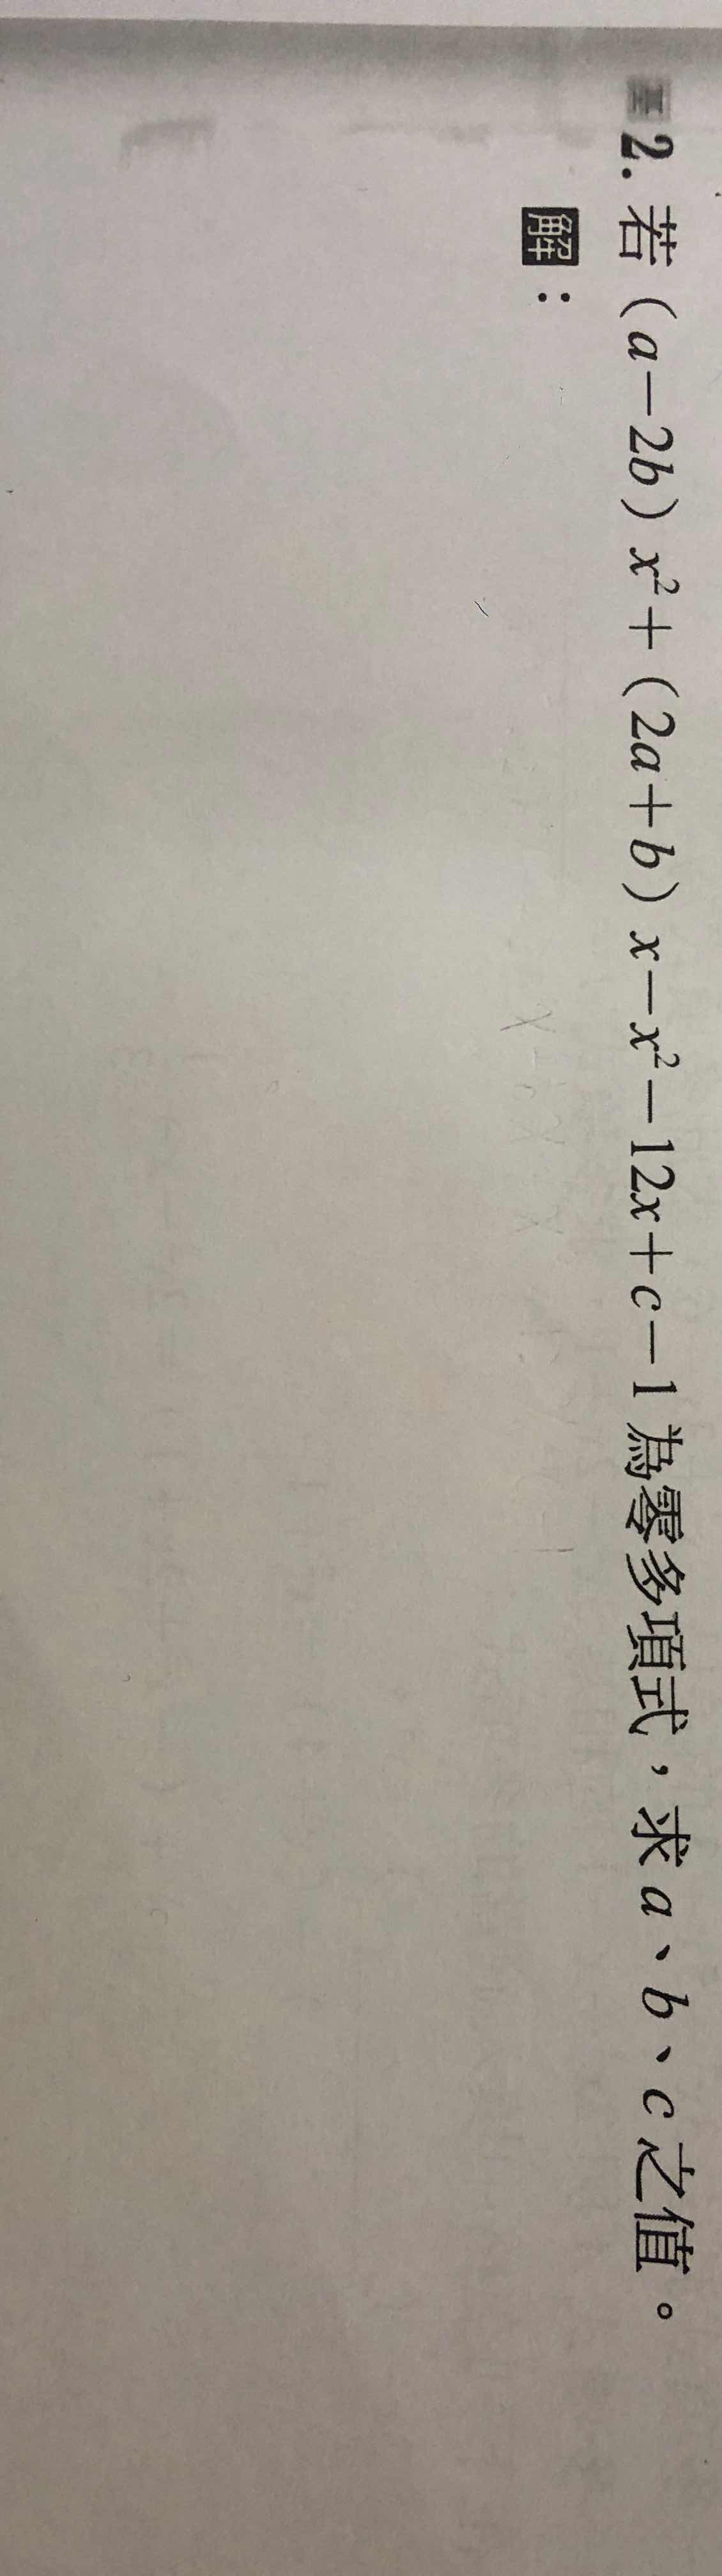 2. 若（a－2b）x²＋（2a＋b）x－x²－12x＋c－1 為零多項式，求 a、b、c 之值。
解：